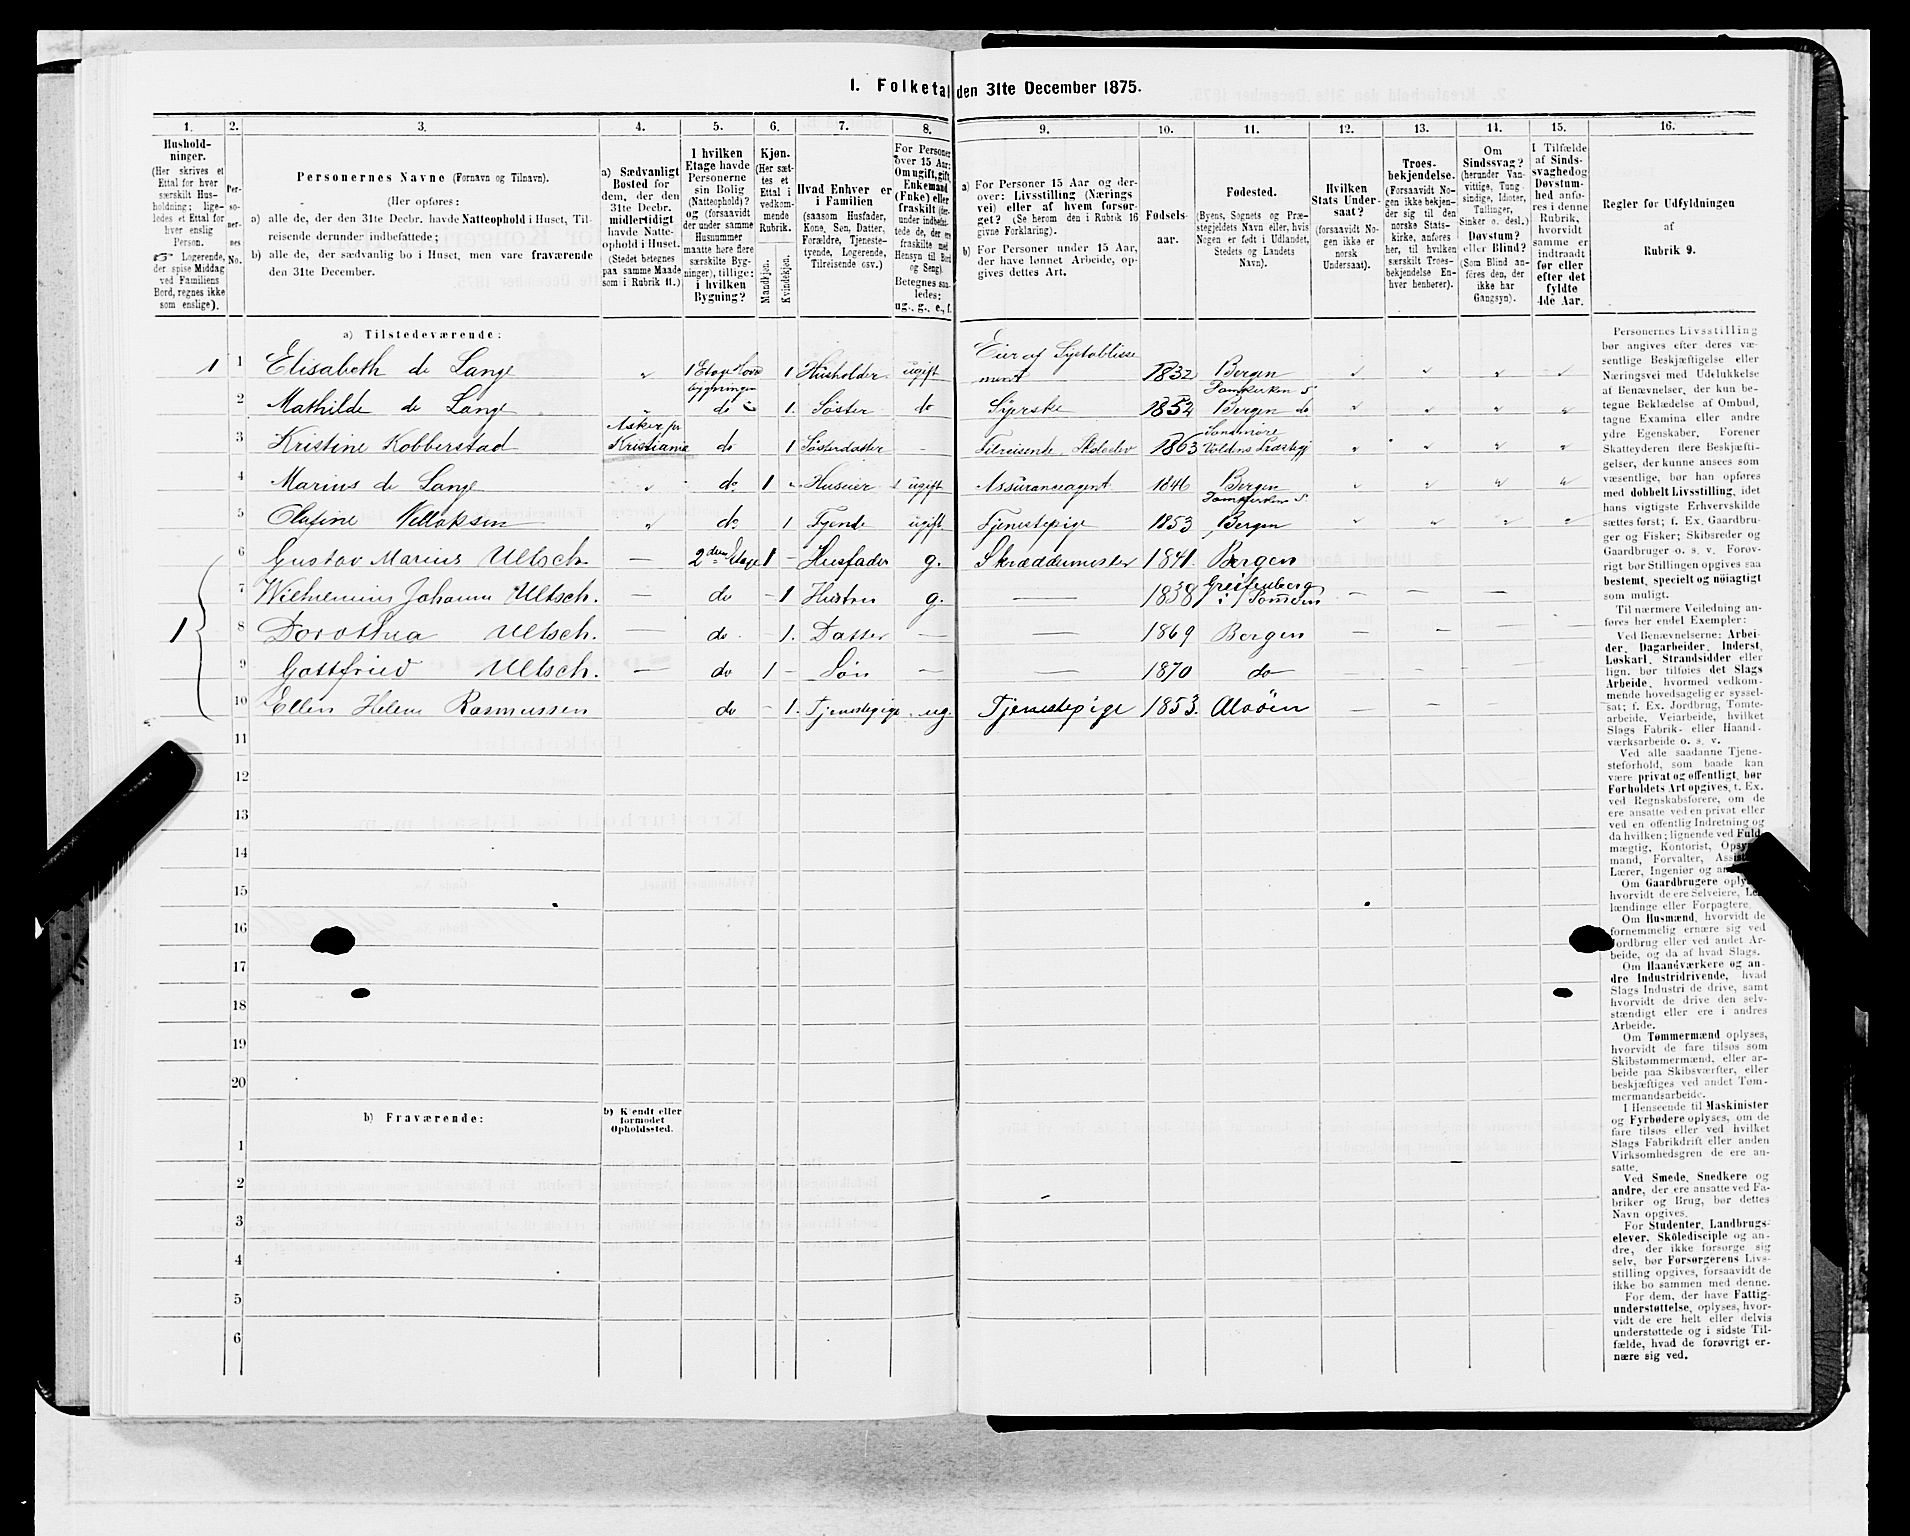 1. Folketal den 31te December 1875.
1. 2. 3. 4. 5. 6. 7. 8. 9. 10. 11. 12. 13. 14. 15. 16.
Hushold-
ninger.
(Her skrives et
Ettal for hver
særskilt Hus-
holdning; lige-
ledes et Ettal for
hver enslig
Person.
☞ Logerende,
der spise Middag
ved Familiens
Bord, regnes ikke
som enslige).
Per-
so-
ner-
nes
No.
Personernes Navne (Fornavn og Tilnavn).
(Her opføres:
a) alle de, der den 31te Decbr. havde Natteophold i Huset, Til-
reisende derunder indbefattede;
b) alle de, der sædvanlig bo i Huset, men vare fraværende
den 31te December.
a) Sædvanligt
Bosted for
dem, der den
31te Decbr.
midlertidigt
havde Natte-
ophold i Huset.
(Stedet betegnes
paa samme Maade
som i Rubrik 11.)
I hvilken
Etage havde
Personerne
sin Bolig
(Natteophold)?
og (forsaavidt
der under samme
Husnummer
maatte høre flere
særskilte Byg-
ninger), tillige:
i hvilken
Bygning?
Kjøn.
(Her sæt-
tes et
Ettal i
vedkom-
mende
Rubrik.
Mandkjøn.
Kvindekjøn.
Hvad Enhver er
i Familien
(saasom Husfader,
Kone, Søn, Datter,
Forældre, Tjeneste-
tyende, Logerende,
Tilreisende osv.)
For Personer
over 15 Aar:
Om ugift, gift,
Enkemand
(Enke) eller
fraskilt (der-
under indbefat-
tede de, der ere
fraskilte med
Hensyn til Bord
og Seng).
Betegnes saa-
ledes:
ug., g., e., f.
a) For Personer 15 Aar og der-
over: Livsstilling (Nærings
vei) eller af hvem forsør-
get? (Se herom den i Rubrik 16
givne Forklaring).
b) For Personer under 15 Aar,
der have lønnet Arbeide, op-
gives dettes Art.
Fødsels-
aar.
Fødested.
(Byens, Sognets og Præ-
stegjeldets Navn eller, hvis
Nogen er født i Udlandet,
Stedets og Landets
Navn).
Hvilken
Stats Under-
saat?
(forsaavidt No-
gen ikke er
norsk
Undersaat).
Troes-
bekjendelse.
(Forsaavidt No-
gen ikke bekjen-
der sig til den
norske Stats-
kirke, anføres
her, til hvilken
særskilt Troes-
bekjendelse En-
hver henhører).
Om
Sindssvag?
(herunder Van-
vittige, Tung-
sindige, Idioter,
Tullinger,
Sinker o. desl.)
Døvstum?
eller Blind?
(Som Blind an-
føres den, der
ikke har
Gangsyn).
I Tilfælde
af Sinds-
svaghedog
Døvstum-
hed anfø-
res i denne
Rubrik,
hvorvidt
samme er
indtraadt
før eller
efter det
fyldte
4de Aar.
Regler for Udfyldningen
af
Rubrik 9.
a) Tilstedeværende:
1 1 Elisabeth de Lange 〃 1 Etage Hoved bygningen 1 Husholder ugift Eier af Syetablissement 1832 Bergen Domkirken S
2 Mathilde de Lange 〃 do 1. Søster do Syerske 1852 Bergen do
3 Kristine Kobberstad Asker pr Kristiania do 1 Søsterdatter - Tilreisende Skoleelev 1863 Søndmøre Voldens Præstegj
4 Marius de Lange 〃 do 1 Huseier ugift Assuranceagent 1846 Bergen Domkirkens S
5 Olafine Nellaksen 〃 do 1 Tyende ugift Tjenestepige 1853 Bergen
6 Gustav Marius Ultsch — 2den Etage 1 - Husfader g. Skræddermester 1841. Bergen
7 Wilhelmine Johanne Ultsch. — do - 1 Hustru g. — 1838 Greifenberg i Pommern
1 8 Dorothea Ultsch. — do - 1. Datter — — 1869 Bergen
9 Gottfried Ultsch. — do 1 - Søn — — 1870 do
10 Ellen Helene Rasmussen do - 1. Tjenestepige ug. Tjenestepige 1853. Alvøen
11
12
13
14
15
16
17
18
19
20
b) Fraværende:
b) Kjendt eller
formodet
Opholdssted.
1
2
3
4
5
6
Personernes Livsstilling
bør angives efter deres væ-
sentlige Beskjæftigelse eller
Næringsvei med Udelukkelse
af Benævnelser, der kun be-
tegne Beklædelse af Ombud,
tagne Examina eller andre
ydre Egenskaber. Forener
Skatteyderen flere Beskjæfti-
gelser, der kunne ansees som
væsentlige, bør han opføres
med dobbelt Livsstilling, idet
hans vigtigste Erhvervskilde
sættes først; f. Ex. Gaardbru-
ger og Fisker; Skibsreder og
Gaardbruger o. s. v. Forøv-
rigt bør Stillingen opgives saa
bestemt, specielt og nøiagtigt
som muligt.
Til nærmere Veiledning an-
føres her endel Exempler:
Ved Benævnelserne: Arbei-
der, Dagarbeider, Inderst,
Løskarl, Strandsidder eller
lign. bør tilføies det Slags
Arbeide, hvormed vedkom-
mende hovedsagelig er syssel-
sat; f. Ex. Jordbrug, Tomte-
arbeide, Veiarbeide, hvilket
Slags Fabrik- eller Haand-
værksarbeide o. s. v.
Ved alle saadanne Tjene-
steforhold, som baade kan
være privat og offentligt, bør
Forholdets Art opgives, t. Ex.
ved Regnskabsførere, om de
ere ansatte ved en privat eller
ved en offentlig Indretning og
da hvilken; lignende ved Fuld-
mægtig, Kontorist, Opsyns-
mand, Forvalter, Assistent,
Lærer, Ingeniør og andre.
Om Gaardbrugere oplyses,
hvorvidt de ere Selveiere, Lei-
lændinge eller Forpagtere.
Om Husmænd, hvorvidt de
fornemmelig ernære sig ved
Jordbrug eller ved andet Ar-
beide, og da af hvad Slags.
Om Haandværkere og an-
dre Industridrivende, hvad
Slags Industri de drive, samt
hvorvidt de drive den selv-
stændigt eller ere i andres
Arbeide.
Om Tømmermænd oplyses,
hvorvidt de fare tilsøs som
Skibstømmermænd, eller ar-
beide paa Skibsværfter, eller
beskjæftiges ved andet Tøm-
mermandsarbeide.
I Henseende til Maskinister
og Fyrbødere oplyses, om de
fare tilsøs eller ved hvilket
Slags Fabrikdrift eller anden
Virksomhedsgren de ere an-
satte.
Ved Smede, Snedkere og
andre, der ere ansatte ved Fa-
briker og Brug, bør dettes
Navn opgives.
For Studenter, Landbrugs-
elever, Skoledisciple og an-
dre, der ikke forsørge sig
selv, bør Forsørgerens Livs-
stilling opgives, forsaavidt de
ikke bo sammen med denne.
For dem, der have Fattig-
understøttelse, oplyses, hvor-
vidt de ere helt eller delvis
understøttede og i sidste Til-
fælde, hvad de forøvrigt er-
nære sig ved.